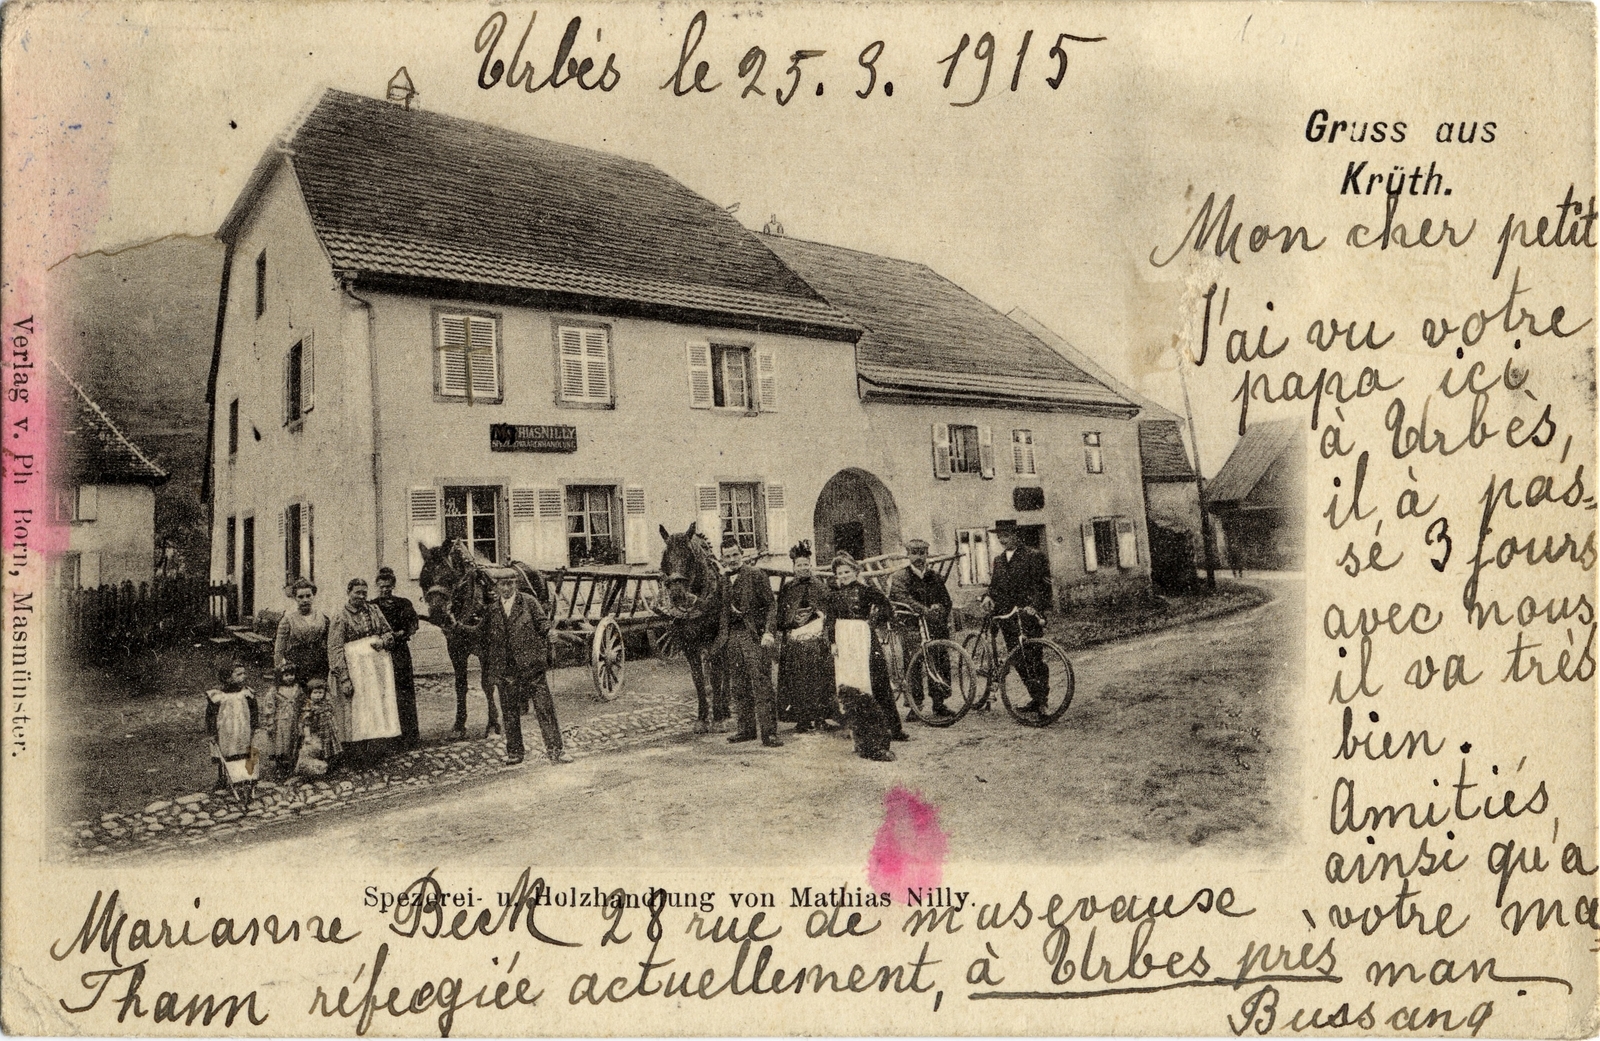 Urbés le 25. 3. 1915
Gruss aus
Krüth.
Mon cher petit
J'ai vu votre
papa ici
à Urbès,
il, à pas-
sé 3 jours
avec nous,
il va très
bien.
Amitiés,
ainsi qu'a
votre ma-
man
HIASNILLY
Verlag v. Ph. Born, Masmünster.
Spezerei- u. Holzhandlung von Mathias Nilly.
Marianne Beck 28 rue de masevause
Thann réfugiée actuellement, à Urbes près
Bussang.